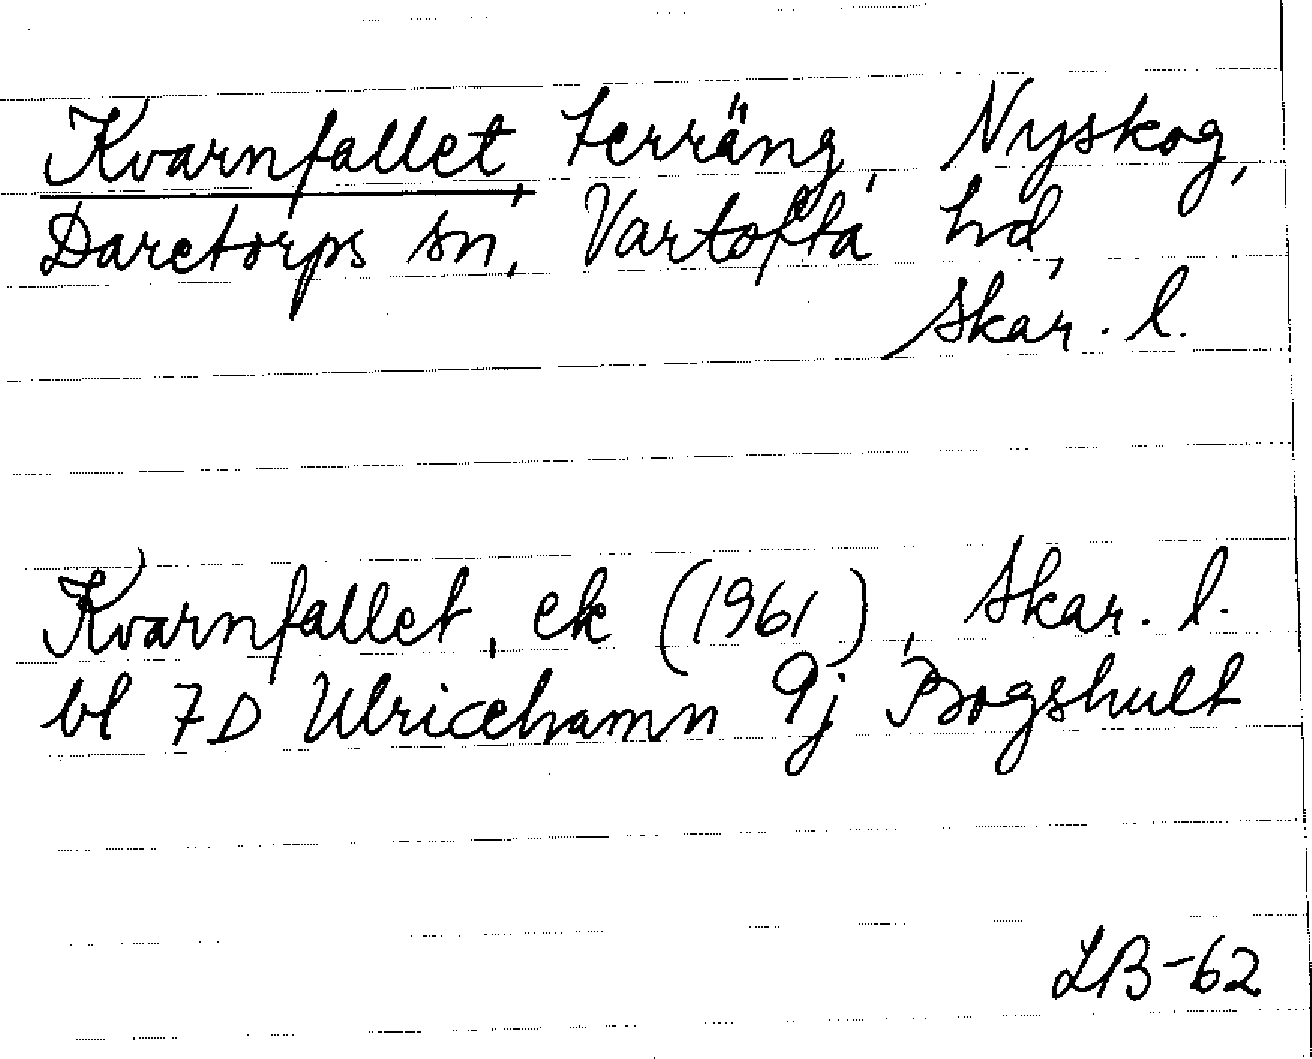 Kvarnfallet, terräng, Nyskog,
Daretorps sn, Vartofta hd,
Skar. l.
Kvarnfallet, ek (1961), Skar. l.
bl 7D Ulricehamn 9j Bogshult
LB-62